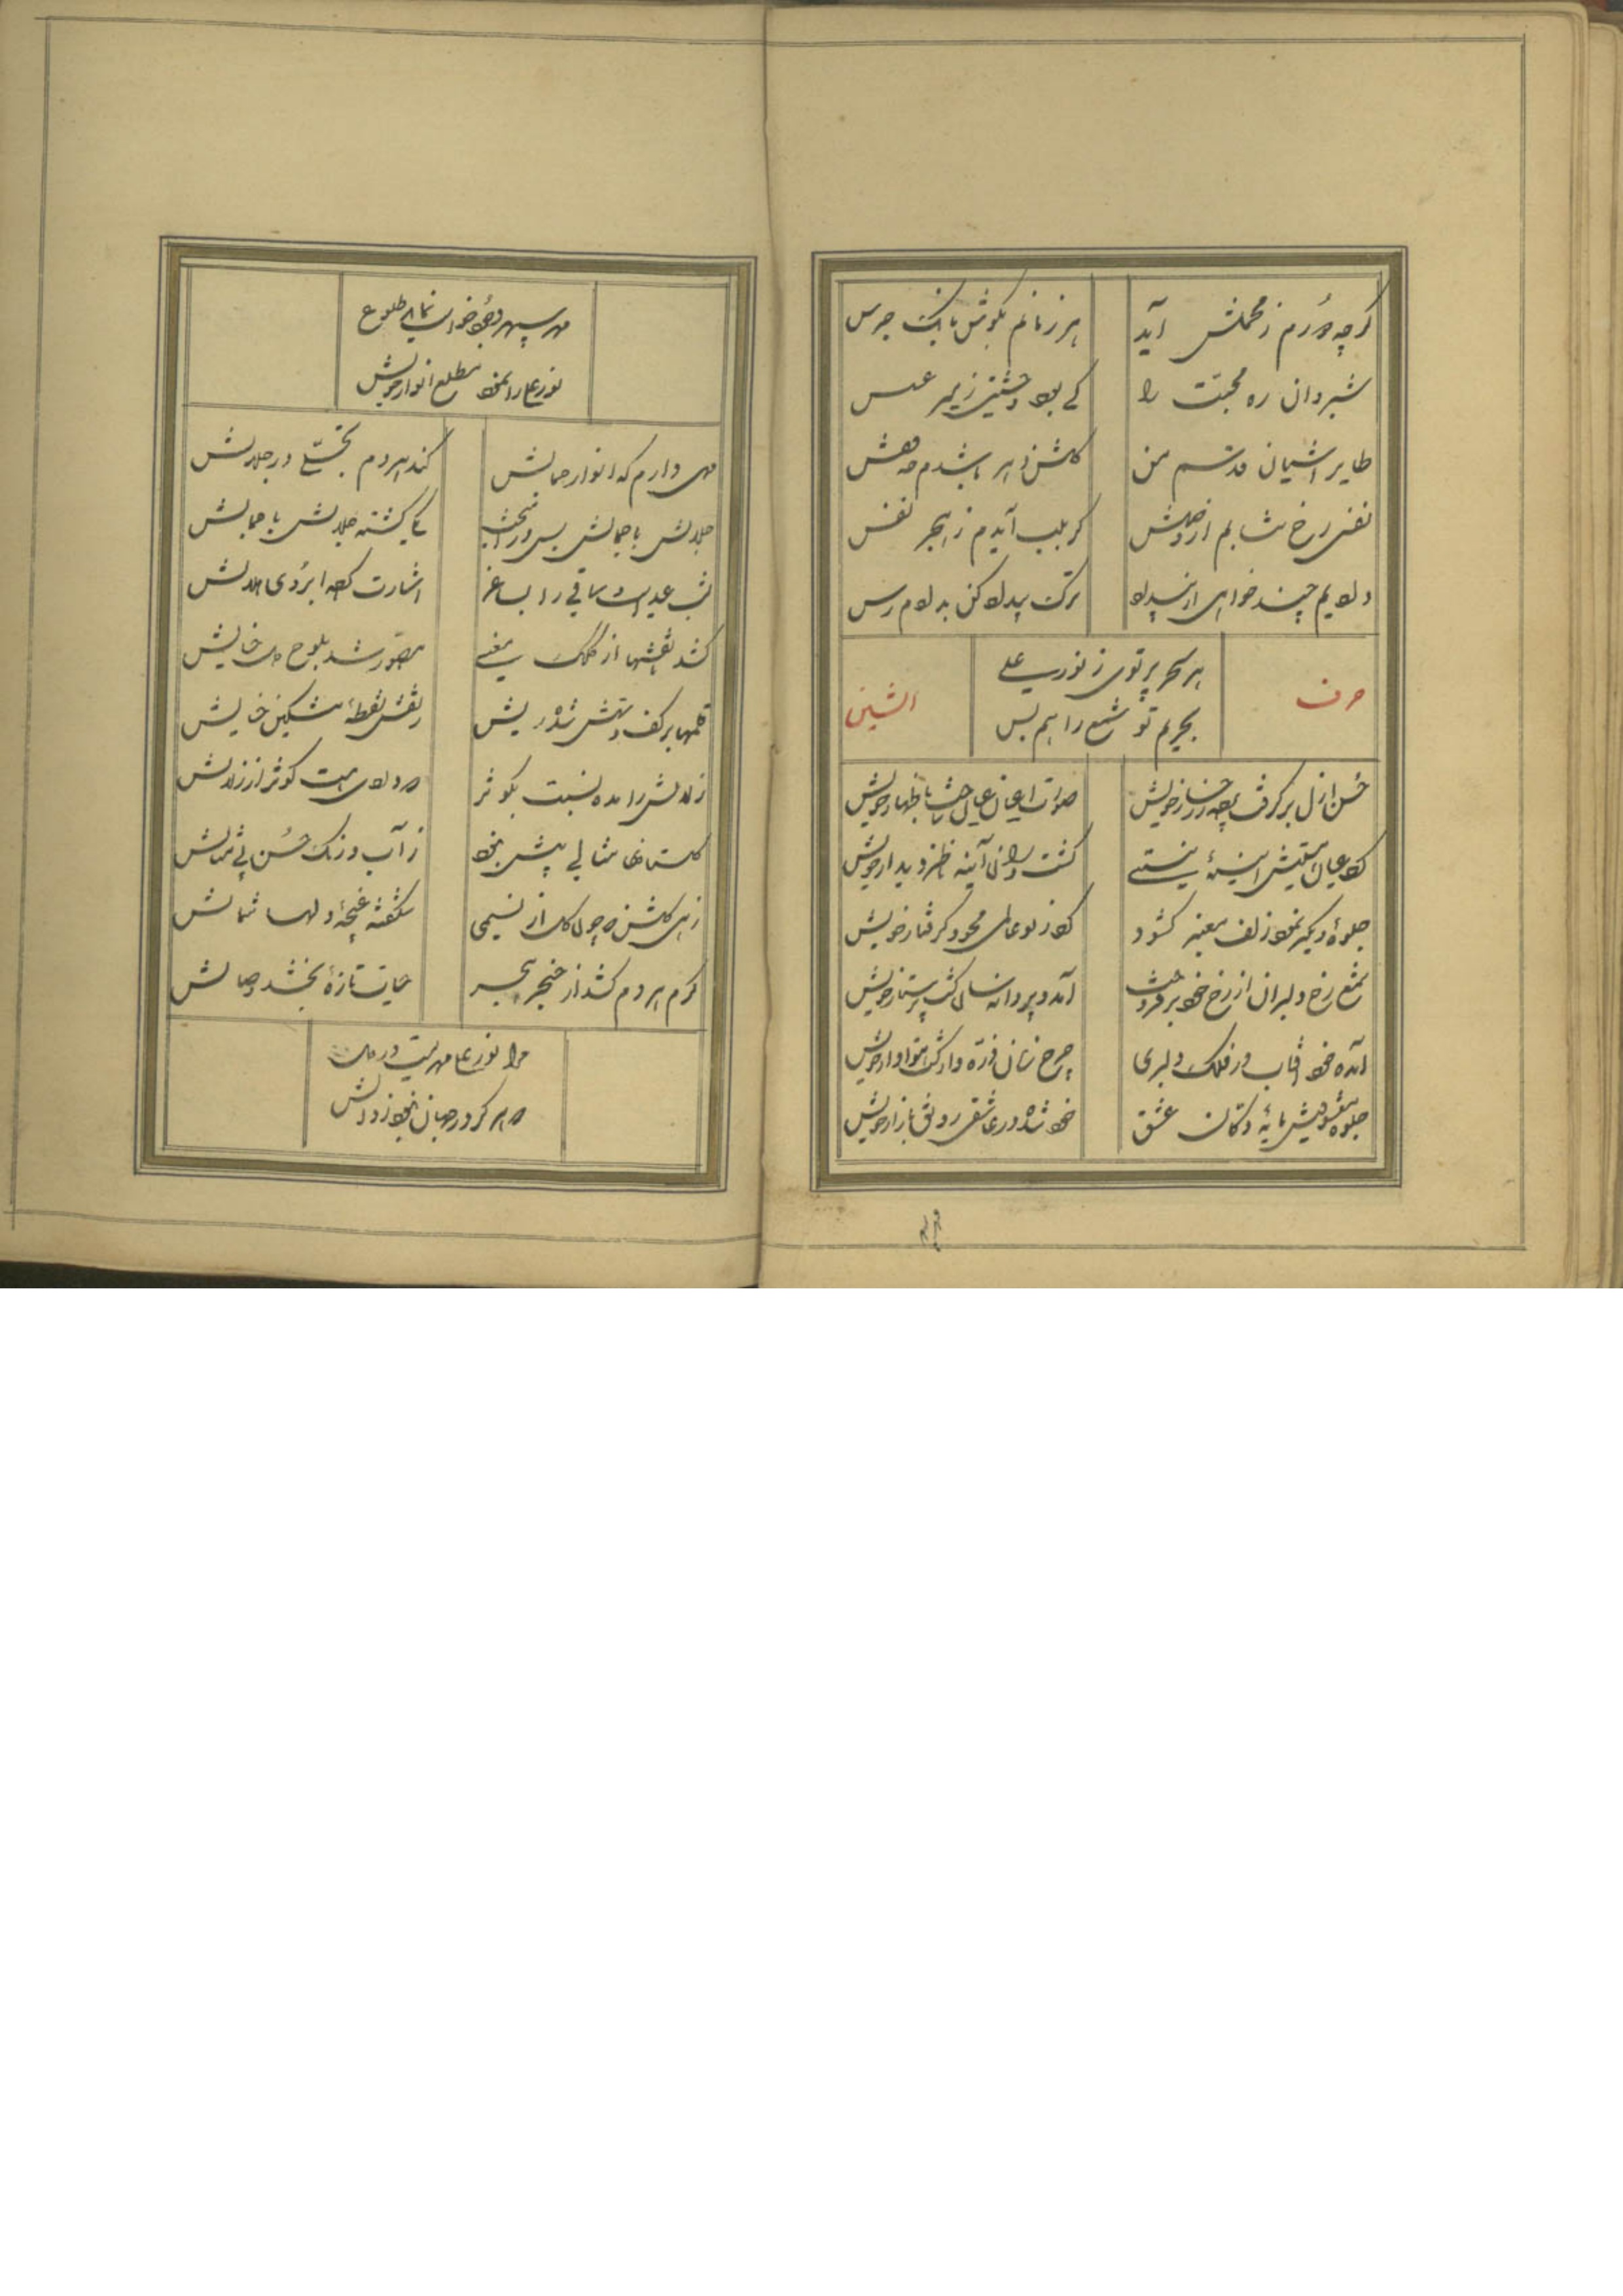 گرچه دورم ز محملش آید
هر زمانم بگوش بانک جرس
شبروان ره محبت را
کی بود وحشتی ز میر عسس
طایر آشیان قدسم من
گلشن دهر باشدم چه قفس
نفسی رخ نتابم از وصلش
گر بلب آیدم ز هجر نفس
دلا یم چند خواهی از
ترک بیداد کن بدادم رس
هر سحر پرتوی ز نور علی
بحریم تو شمع راهم بس
حرف
الشین
حسن ازل برگرفت پرده ز رخسار خویش
صورت اعیان عیان ساخت باظهار خویش
کرد عیان هستیش آینهٔ نیستی
گشت در آن آینه ناظر دیدار خویش
جلوهٔ دیگر نمود زلف معنبر گشود
کرد دل عالمی محو و گرفتار خویش
شمع رخ دلبران از رخ خود برفروخت
آمد و پروانه سان گشت پرستار خویش
آمده خود آفتاب در فلک دلبری
چرخ زنان ذره وار گشت هوادار خویش
جلوه معشوقیش مایهٔ دکان عشق
خود شده در عاشقی رونق بازار خویش
مهر سپهر وجود خواست نماید طلوع
نور علی را نمود مطلع انوار خویش
مهی دارم که انوار جمالش
کند هر دم تجلی در جلالش
جلالش با جمالش بس در آمیخت
یکی گشته جلالش با جمالش
شب عید است و ساقی را بساغر
اشارت کرده ابروی هلالش
کشد نقشها از کلک معنی
مصور شد بلوح دل خیالش
قلمها بر کف دستش شده ریش
ز نقش نقطهٔ مشکین خالش
زلالش را مده نسبت بکوثر
که دلهای مست کوثر از زلالش
گلستان مثالی پیش نبود
ز آب و رنگ حسن بی مثالش
زهی گلشن که چون گل از نسیمی
شکفته غنچهٔ دلها شمالش
گرم هر دم کشد از خنجر هجر
حیات تازهٔ بخشد وصالش
مرا نور علی مهریست در دل
که هرگز در جهان نبود زوالش